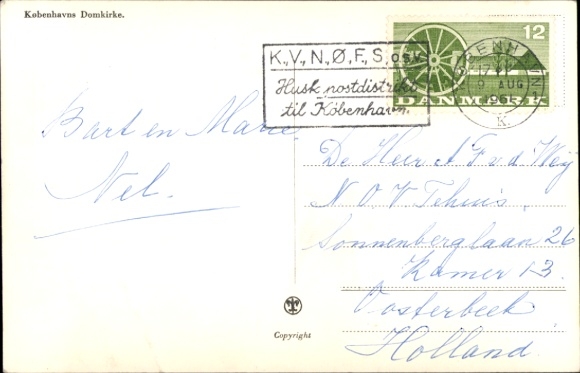 Københavns Domkirke.
12
DANMARK
K., V., N., Ø., F., S. o.s.v.
Husk postdistrikt
til København.
KØBENHAVN
9 AUG
K.
Bart en Marie
Nel.
De Heer A F v d Weij
N. O. V. Tehuis.
Sonnenberglaan 26
Kamer 13.
Oosterbeek
Holland.
Copyright